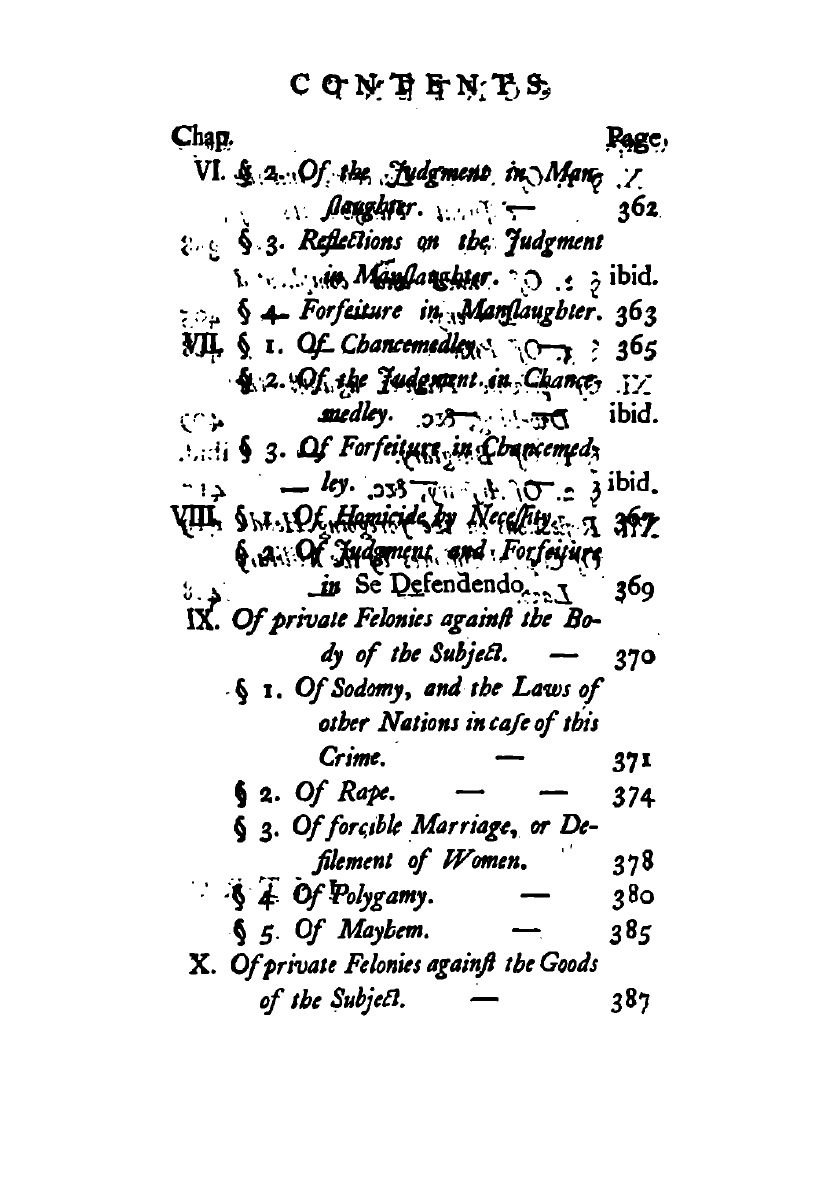 CONTENTS.
Chap. Page.
VI. § 2. Of the Judgment in Man-
ſlaughter. — 362
§ 3. Reflections on the Judgment
in Manſlaughter. ibid.
§ 4. Forfeiture in Manſlaughter. 363
VII. § 1. Of Chancemedley. — 365
§ 2. Of the Judgment in Chance-
medley. — — ibid.
§ 3. Of Forfeiture in Chancemed-
ley. — — ibid.
VIII. § 1. Of Homicide by Neceſſity. 367
§ 2. Of Judgment and Forfeiture
in Se Defendendo. 369
IX. Of private Felonies againſt the Bo-
dy of the Subject. — 370
§ 1. Of Sodomy, and the Laws of
other Nations in caſe of this
Crime. — 371
§ 2. Of Rape. — — 374
§ 3. Of forcible Marriage, or De-
filement of Women. 378
§ 4. Of Polygamy. — 380
§ 5. Of Mayhem. — 385
X. Of private Felonies againſt the Goods
of the Subject. — 387